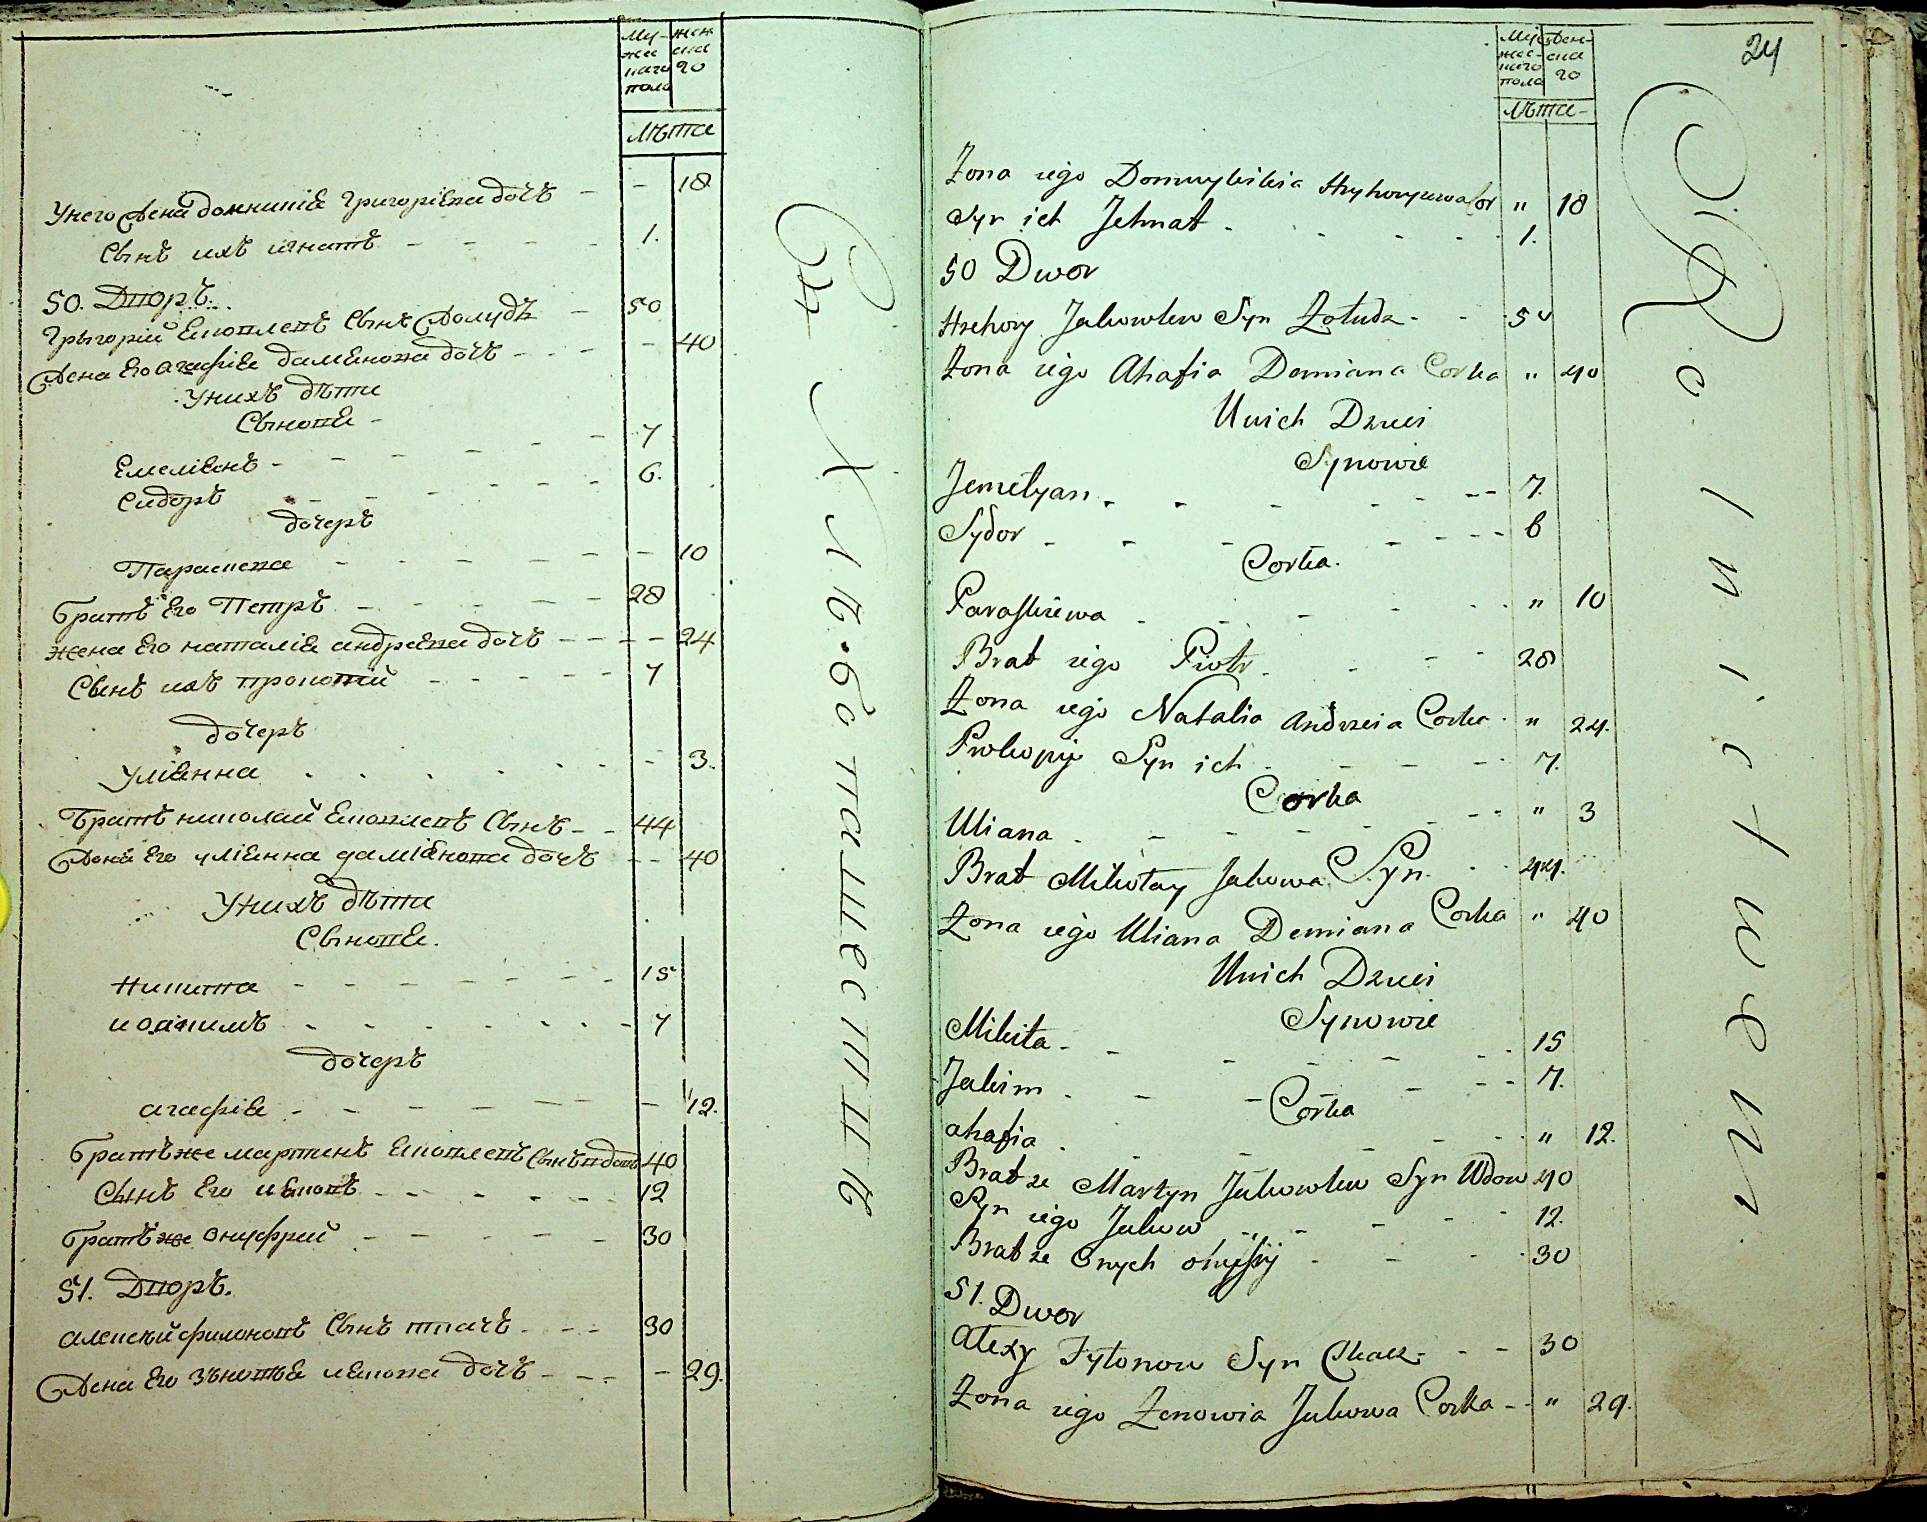 Му-
жес
каго
пола
жен
ска
го
лѣта
Унего жена домникія Григоріева дочь - - 18
Сынъ ихъ игнатъ - - - - 1.
50. Дворъ.
Григорій Яковлевъ Сынъ Жолудъ - 50
Жена его агафія даміянова дочь - - - - 40
Унихъ дѣти
Сыновя -
Емеліянъ - - - - - 7
Сидоръ - - - - - - 6.
дочеръ
Параскева - - - - - - 10
братъ его Петръ - - - - - 28
жена его наталія андреева дочь - - - - 24
Сынъ ихъ прокопій - - - - - 7
дочеръ
уліянна - 3.
братъ николай Яковлевъ Сынъ - - 44
Жена его уліянна даміянова дочь - - 40
Унихъ дѣти
Сыновя.
никита - - - - - - - 15
иоакимъ - - - - - - - 7
дочеръ
агафія - - - - - - - 12.
братъ же мартинъ Яковлевъ Сынъ вдовъ 40
Сынъ его яковъ - - - - - - 12
братъ же онуфрий - - - - - 30
51. Дворъ.
алексѣй филоновъ Сынъ ткачъ - - - 30
Жена его зѣновѣя якова дочь - - - - 29.
Съ Хлѣбопашестпѣ
24
Му
жес-
каго
пола
жен-
ска
го
лѣта -
Żona iego Domnykikia Hryhoryewa Cor " 18
Syn ich Jehnat - - - - - 1.
50 Dwor
Hrehory Jakowlew Syn Żołudz - - - 50
Żona iego Ahafia Demiana Corka " 40
Unich Dzieci
Synowie
Jemelyan - - - - - - - 7.
Sydor - - - - - - - - 6
Corka.
Paraskiewa - - - - - " 10
Brat iego Piotr - - - - 28
Żona iego Natalia Andrzeia Corka - " 24.
Prokopij Syn ich - - - - - 7.
Corka
Uliana - - - - - - - - " 3
Brat Mikołay Jakowa Syn - - 44.
Żona iego Uliana Demiana Corka " 40
Unich Dzieci
Synowie
Mikita - - - - - - - 15
Jakim - - - - - - 7.
Corka
ahafia - - - - - - " 12.
Brat ze Martyn Jakowlew Syn Wdow 40
Syn iego Jakow - - - - - 12.
Brat ze Onych - - - 30
51. Dwor
Alexy Fylonow Syn Tkacz - - - 30
Żona iego Zenowia Jakowa Corka - - " 29.
Rolnictwem